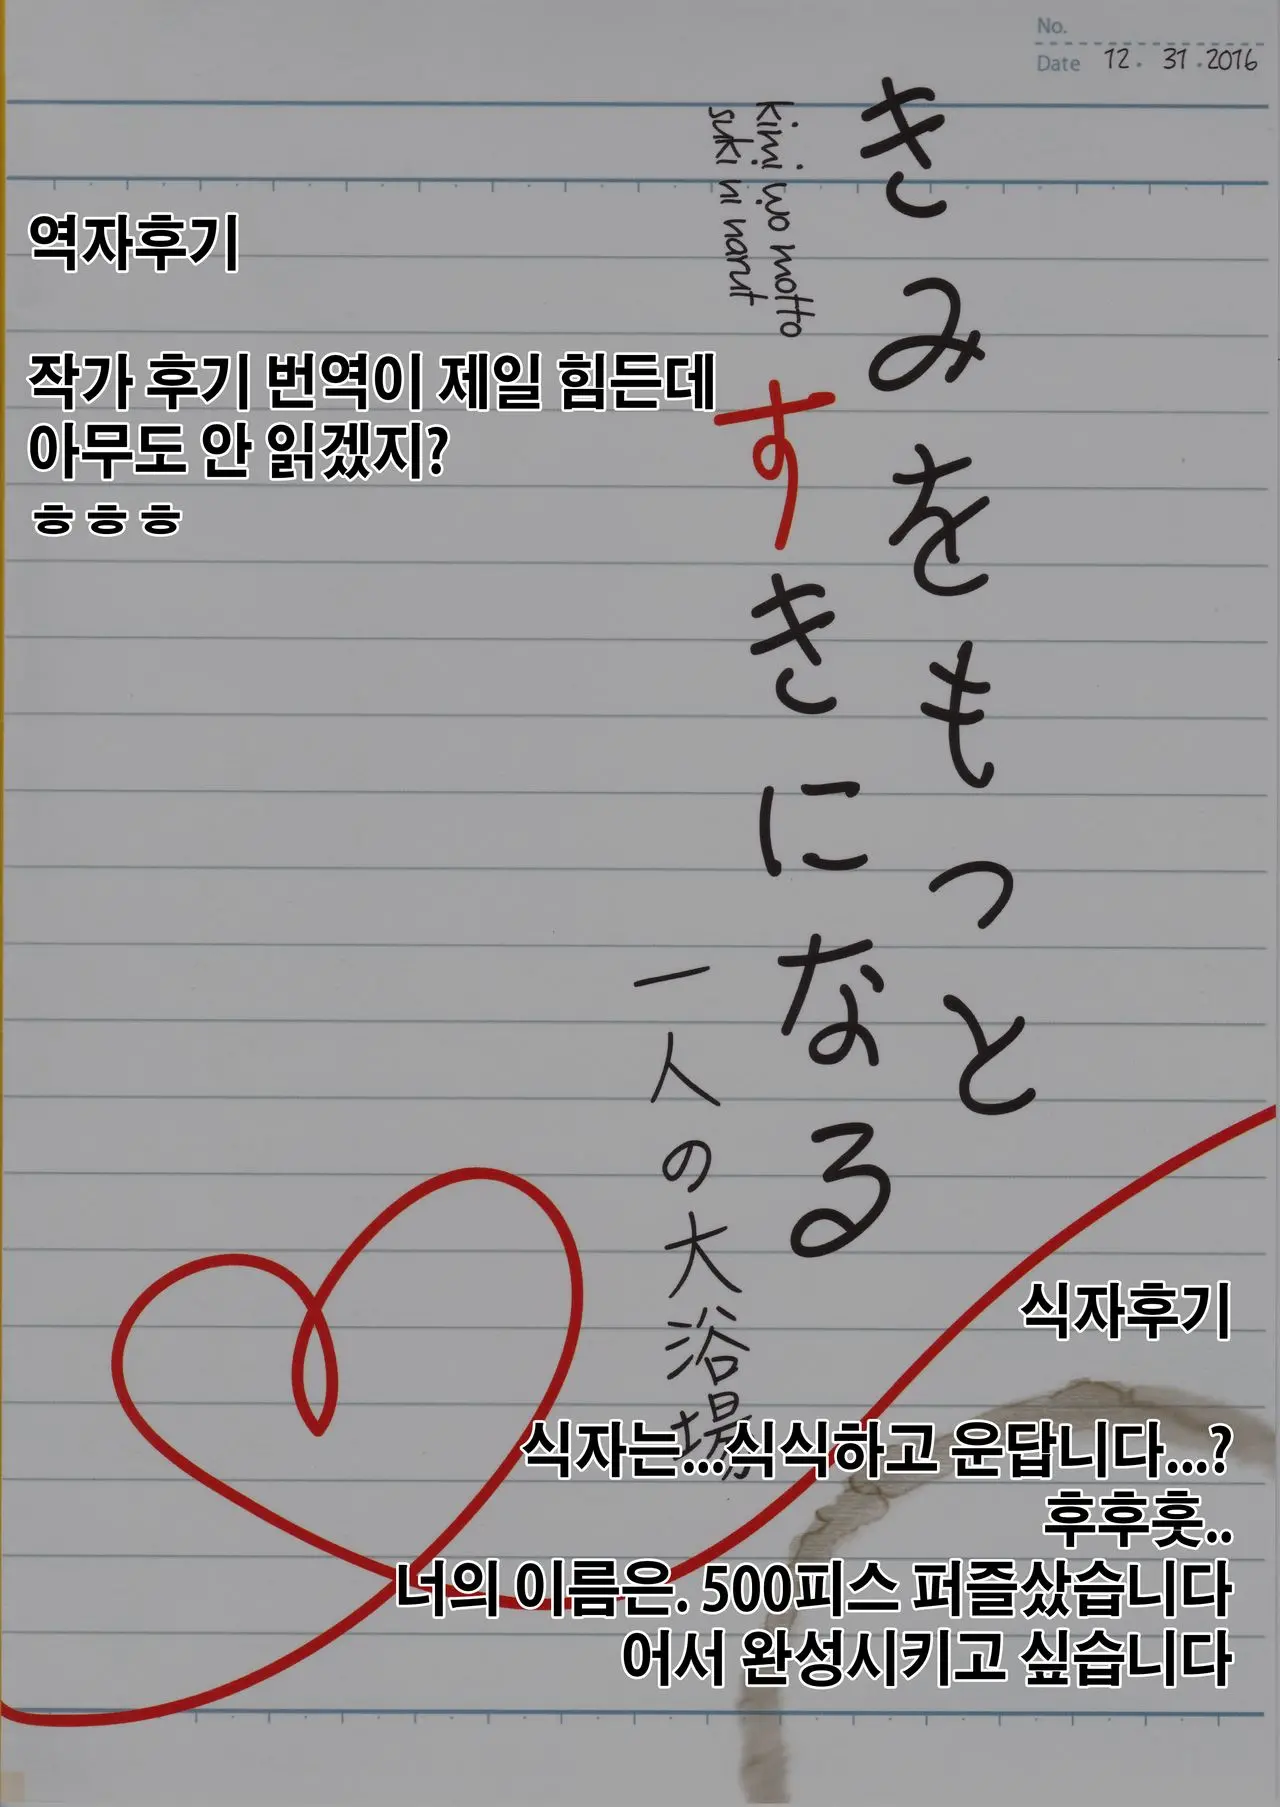 No.
Date 12. 31. 2016
きみをもっと
すきになる
kimi wo motto
suki ni narut
一人の大浴場
역자후기
작가 후기 번역이 제일 힘든데
아무도 안 읽겠지?
ㅎㅎㅎ
식자후기
식자는...식식하고 운답니다...?
후후훗..
너의 이름은. 500피스 퍼즐샀습니다
어서 완성시키고 싶습니다